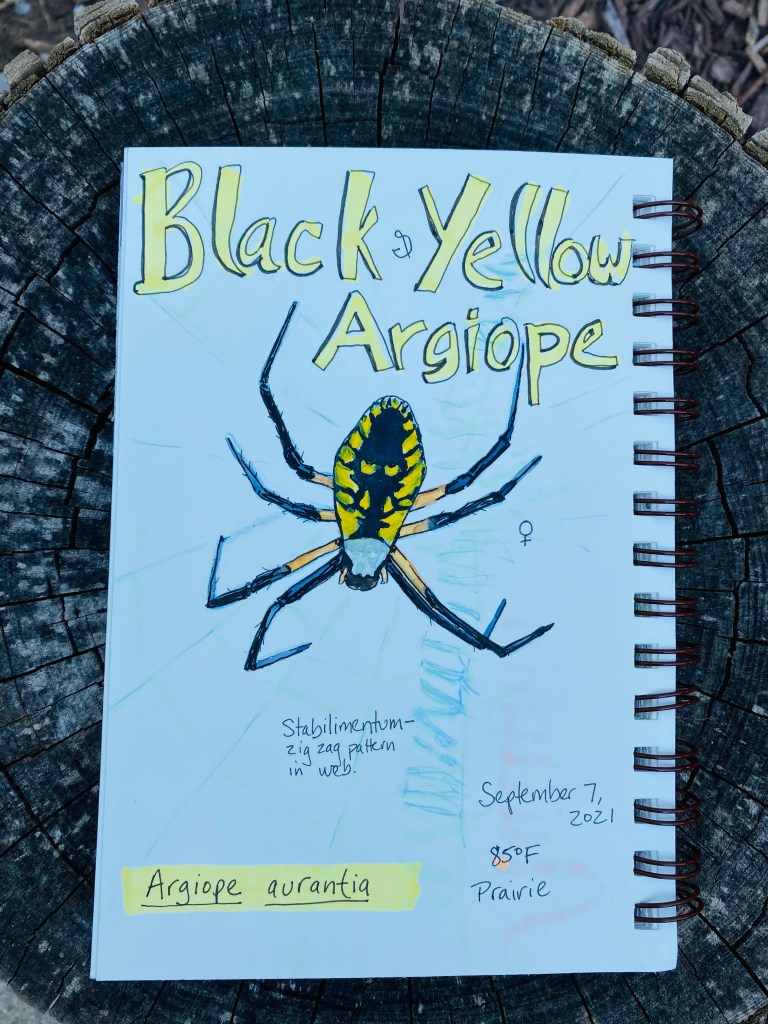 Black & Yellow
Argiope
♀
Stabilimentum-
zig zag pattern
in web.
September 7,
2021
85°F
Prairie
Argiope aurantia